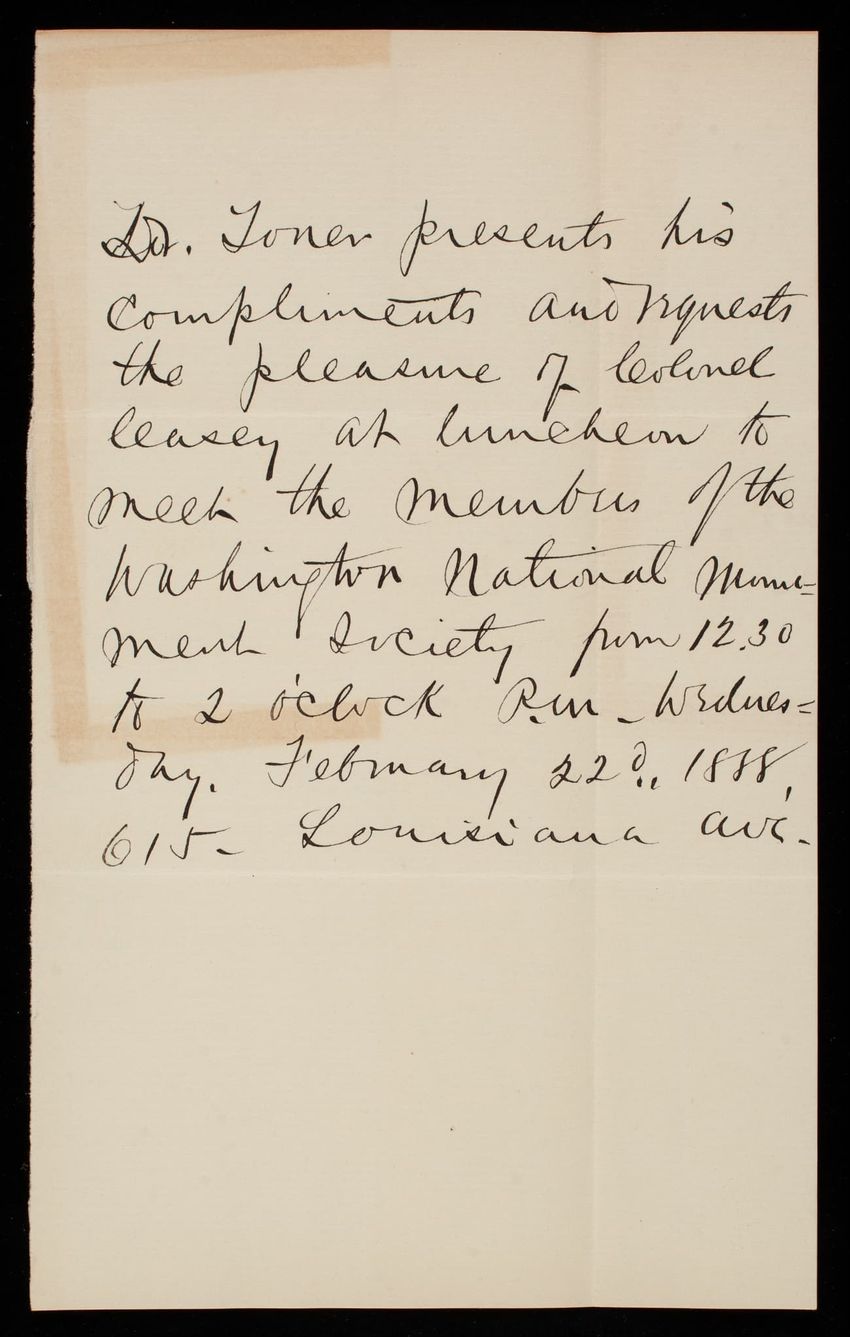 Dr. Toner presents his
compliments and requests
the pleasure of Colonel
Casey at luncheon to
meet the members of the
Washington National Monu=
ment Society from 12.30
to 2 o'clock P.m - Wednes=
day. February 22d., 1888,
615 - Louisiana Ave.